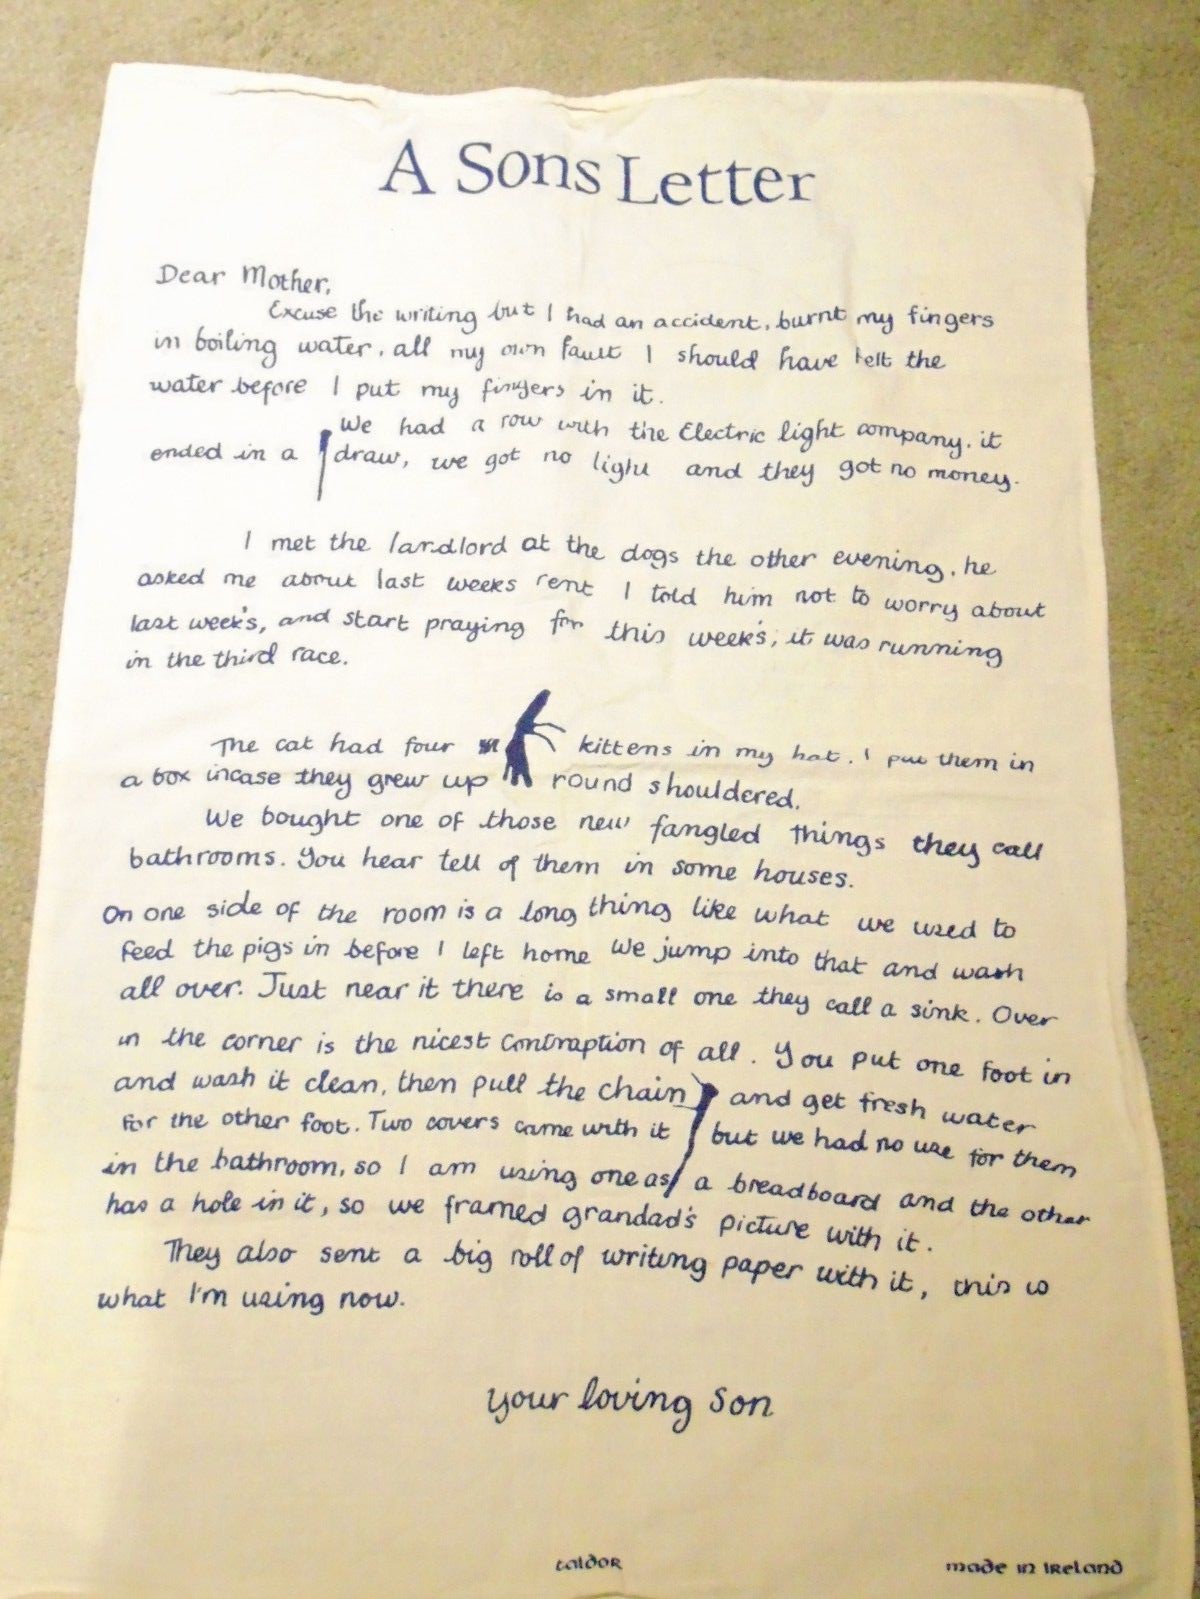 A Sons Letter
Dear Mother,
Excuse the writing but I had an accident, burnt my fingers
in boiling water, all my own fault I should have felt the
water before I put my fingers in it.
We had a row with the Electric light company, it
ended in a draw, we got no light and they got no money.
I met the landlord at the dogs the other evening, he
asked me about last weeks rent I told him not to worry about
last week's, and start praying for this week's, it was running
in the third race.
The cat had four kittens in my hat. I put them in
a box incase they grew up round shouldered.
We bought one of those new fangled things they call
bathrooms. You hear tell of them in some houses.
On one side of the room is a long thing like what we used to
feed the pigs in before I left home We jump into that and wash
all over. Just near it there is a small one they call a sink. Over
in the corner is the nicest contraption of all. You put one foot in
and wash it clean, then pull the chain and get fresh water
for the other foot. Two covers came with it but we had no use for them
in the bathroom, so I am using one as a breadboard and the other
has a hole in it, so we framed grandad's picture with it.
They also sent a big roll of writing paper with it, this is
what I'm using now.
your loving Son
taldor
made in Ireland